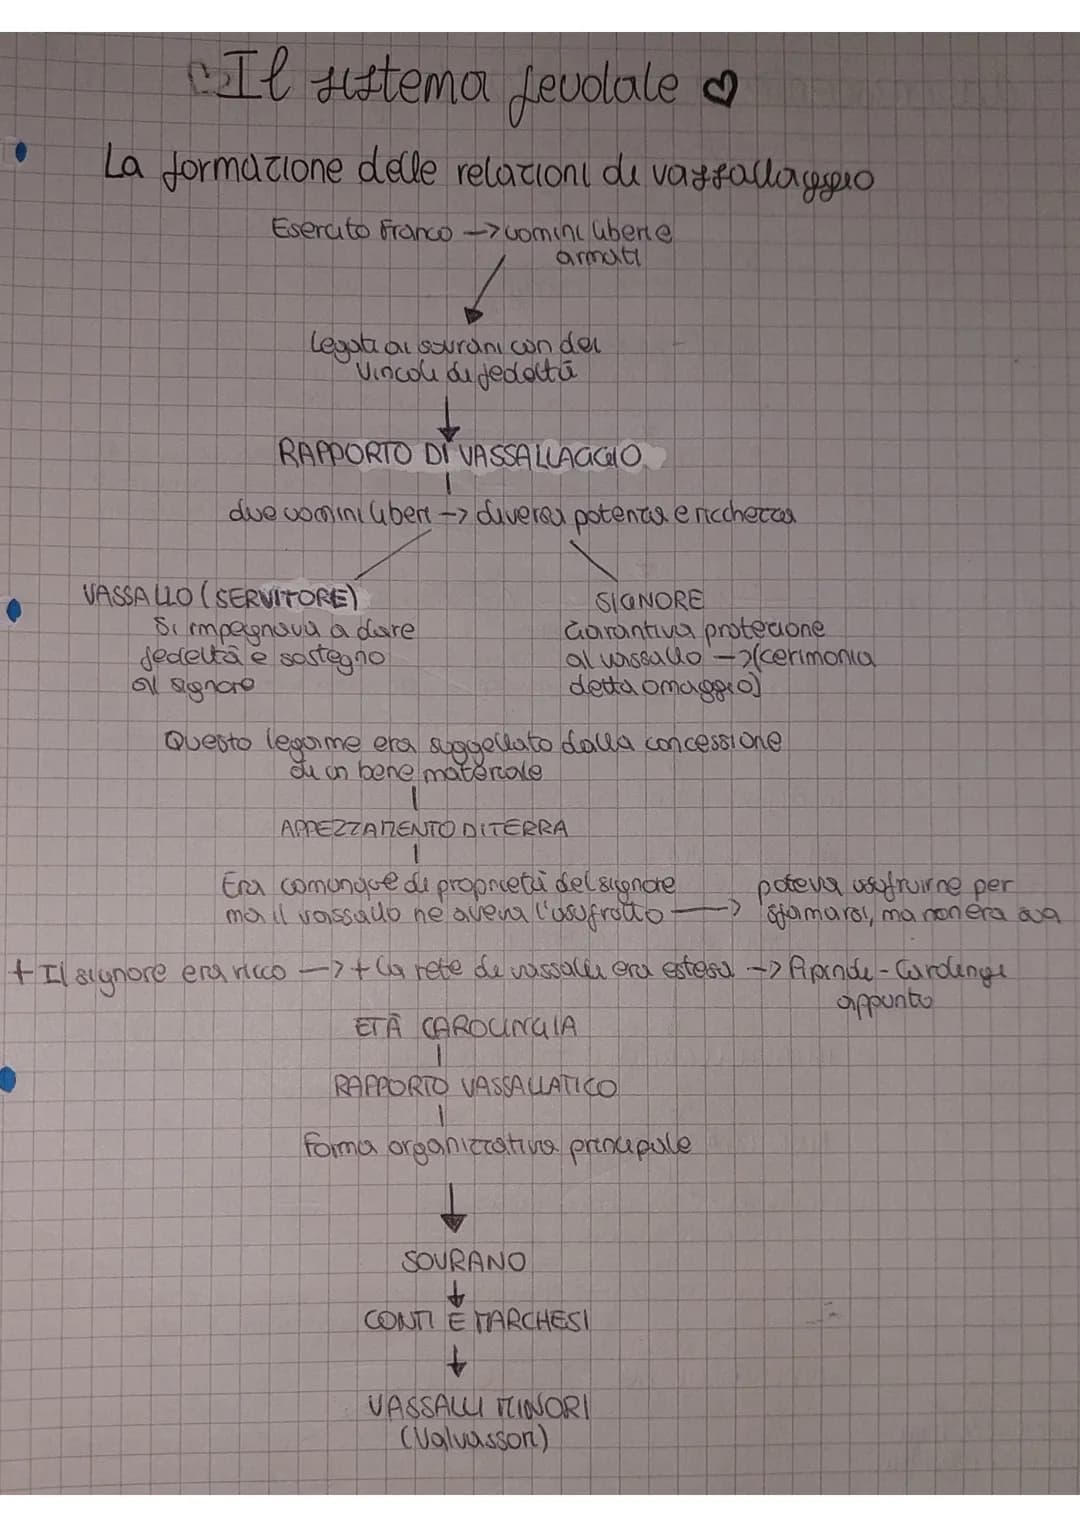 Il sistema feudale ♡
La formazione delle relazioni di vassallaggio
Esercito Franco -> uomini liberi e
armati
Legati ai sovrani con dei
vincoli di fedeltà
RAPPORTO DI VASSALLAGGIO
due uomini liberi -> diversa potenza e ricchezza
VASSALLO (SERVITORE)
Si impegnava a dare
fedeltà e sostegno
al signore
SIGNORE
Garantiva protezione
al vassallo -> (cerimonia
detta omaggio)
Questo legame era suggellato dalla concessione
di un bene materiale
APPEZZAMENTO DI TERRA
Era comunque di proprietà del signore
ma il vassallo ne aveva l'usufrutto ->
poteva usufruirne per
sfamarsi, ma non era sua
+ Il signore era ricco -> + la rete di vassalli era estesa -> Pipinidi - Carolingi
appunto
ETÀ CAROLINGIA
RAPPORTO VASSALLATICO
Forma organizzativa principale
SOVRANO
CONTI E MARCHESI
VASSALLI MINORI
(Valvassori)